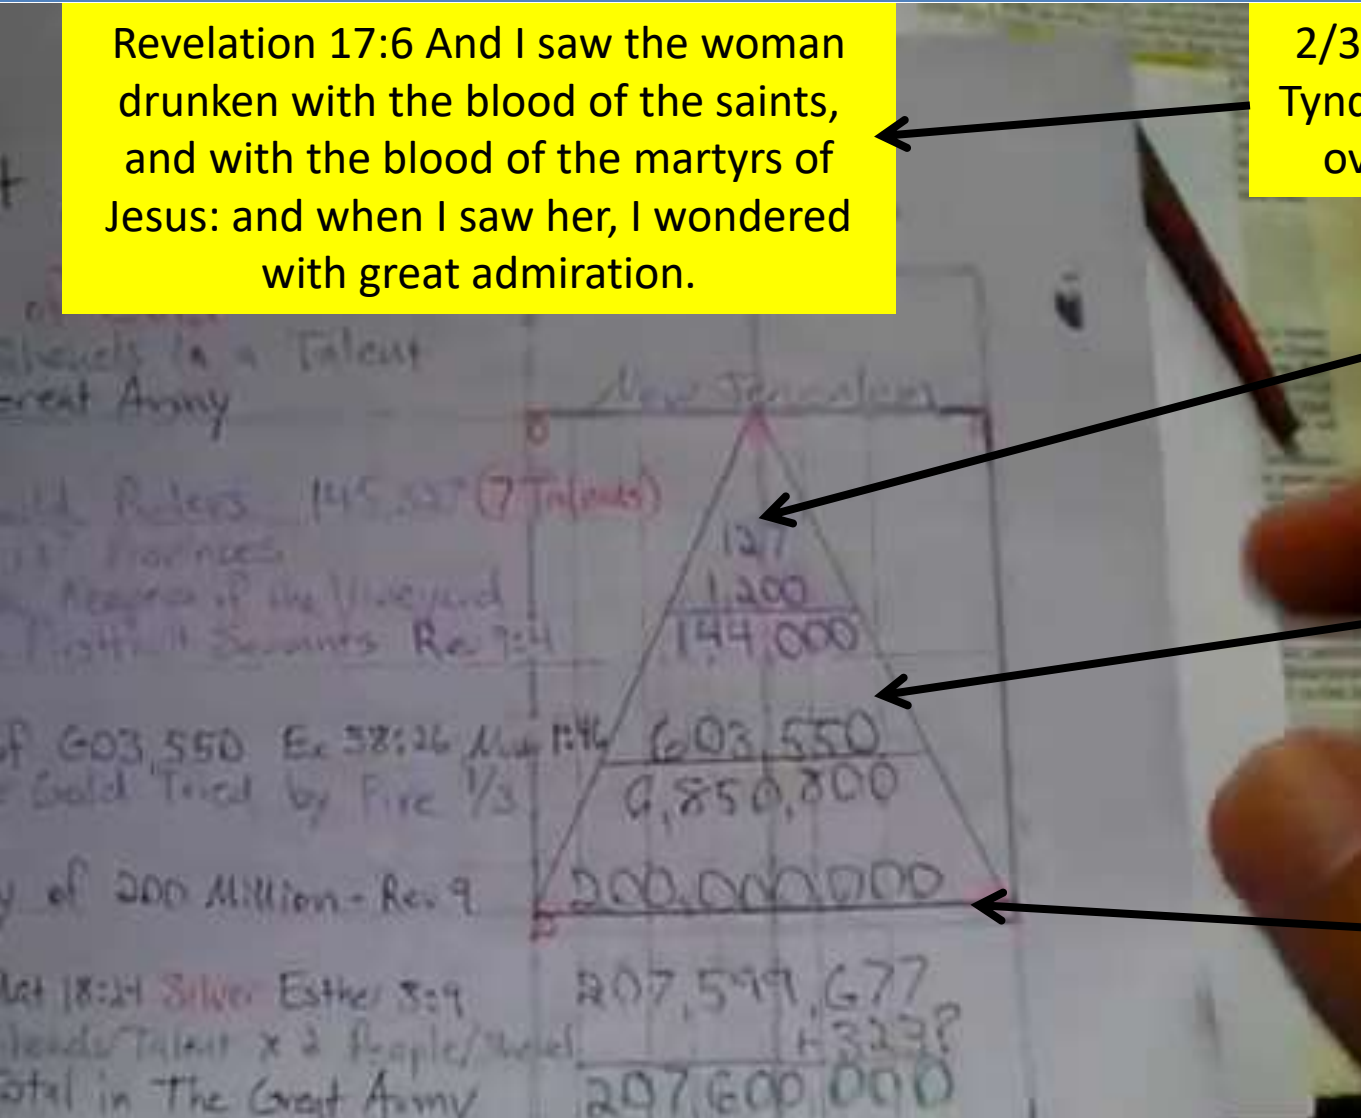 Revelation 17:6 And I saw the woman
drunken with the blood of the saints,
and with the blood of the martyrs of
Jesus: and when I saw her, I wondered
with great admiration.
2/3
Tynd
ov
in a Talent
Great Army
New Jerusalem
Rulers 145,327 (7 Talents)
Provinces
of the Vineyard
Servants Re 7:4
127
1,200
144,000
of 603,550 Ex 38:26 Num 1:46
Gold Tried by Fire 1/3
603,550
6,850,800
y of 200 Million - Rev 9
200,000,000
Mat 18:24 Silver Esther 3:9
Talent x 2 People/Shekel
Total in The Great Army
207,599,677
+323?
207,600,000